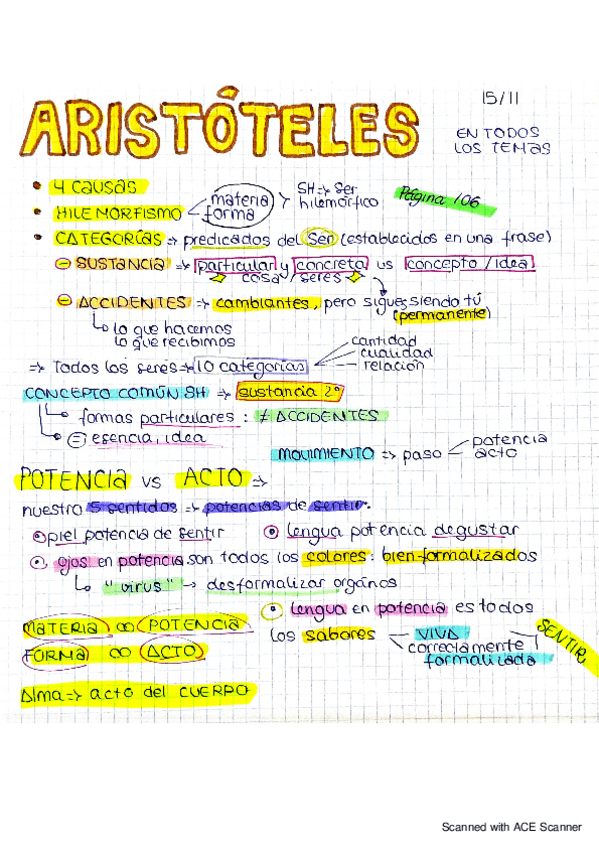 15/11
ARISTÓTELES
EN TODOS
LOS TEMAS
• 4 CAUSAS
• HILEMORFISMO materia forma SH => Ser hilemórfico Página 106
• CATEGORÍAS => predicados del Ser (establecidos en una frase)
SUSTANCIA => particular y concreta vs concepto / idea
cosa seres
ACCIDENTES => cambiantes, pero sigues siendo tú
(permanente)
lo que hacemos
lo que recibimos
=> Todos los seres => 10 categorías cantidad cualidad relación
CONCEPTO COMÚN SH => sustancia 2º
formas particulares : ≠ ACCIDENTES
= esencia, idea
MOVIMIENTO => paso potencia acto
POTENCIA vs ACTO =>
nuestro 5 sentidos => potencias de sentir.
piel potencia de sentir
lengua potencia degustar
ojos en potencia son todos los colores : bien formalizados
"virus" -> desformalizar organos
lengua en potencia es todos
los sabores VIVA correctamente formalizada SENTIR
MATERIA ∞ POTENCIA
FORMA ∞ ACTO
Alma => acto del CUERPO
Scanned with ACE Scanner